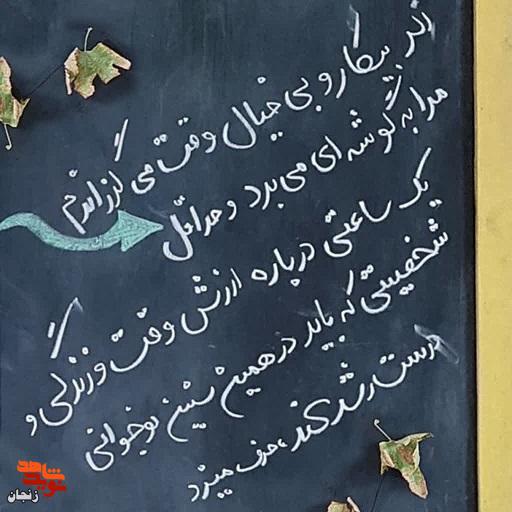 اگر بیکار و بی خیال وقت می گذراندم
مرا به گوشه ای می برد و حداقل
یک ساعتی درباره ارزش وقت و زندگی و
شخصیتی که باید در همین سنین نوجوانی
درست رشد کند، حرف میزد
نوید شاهد
زنجان